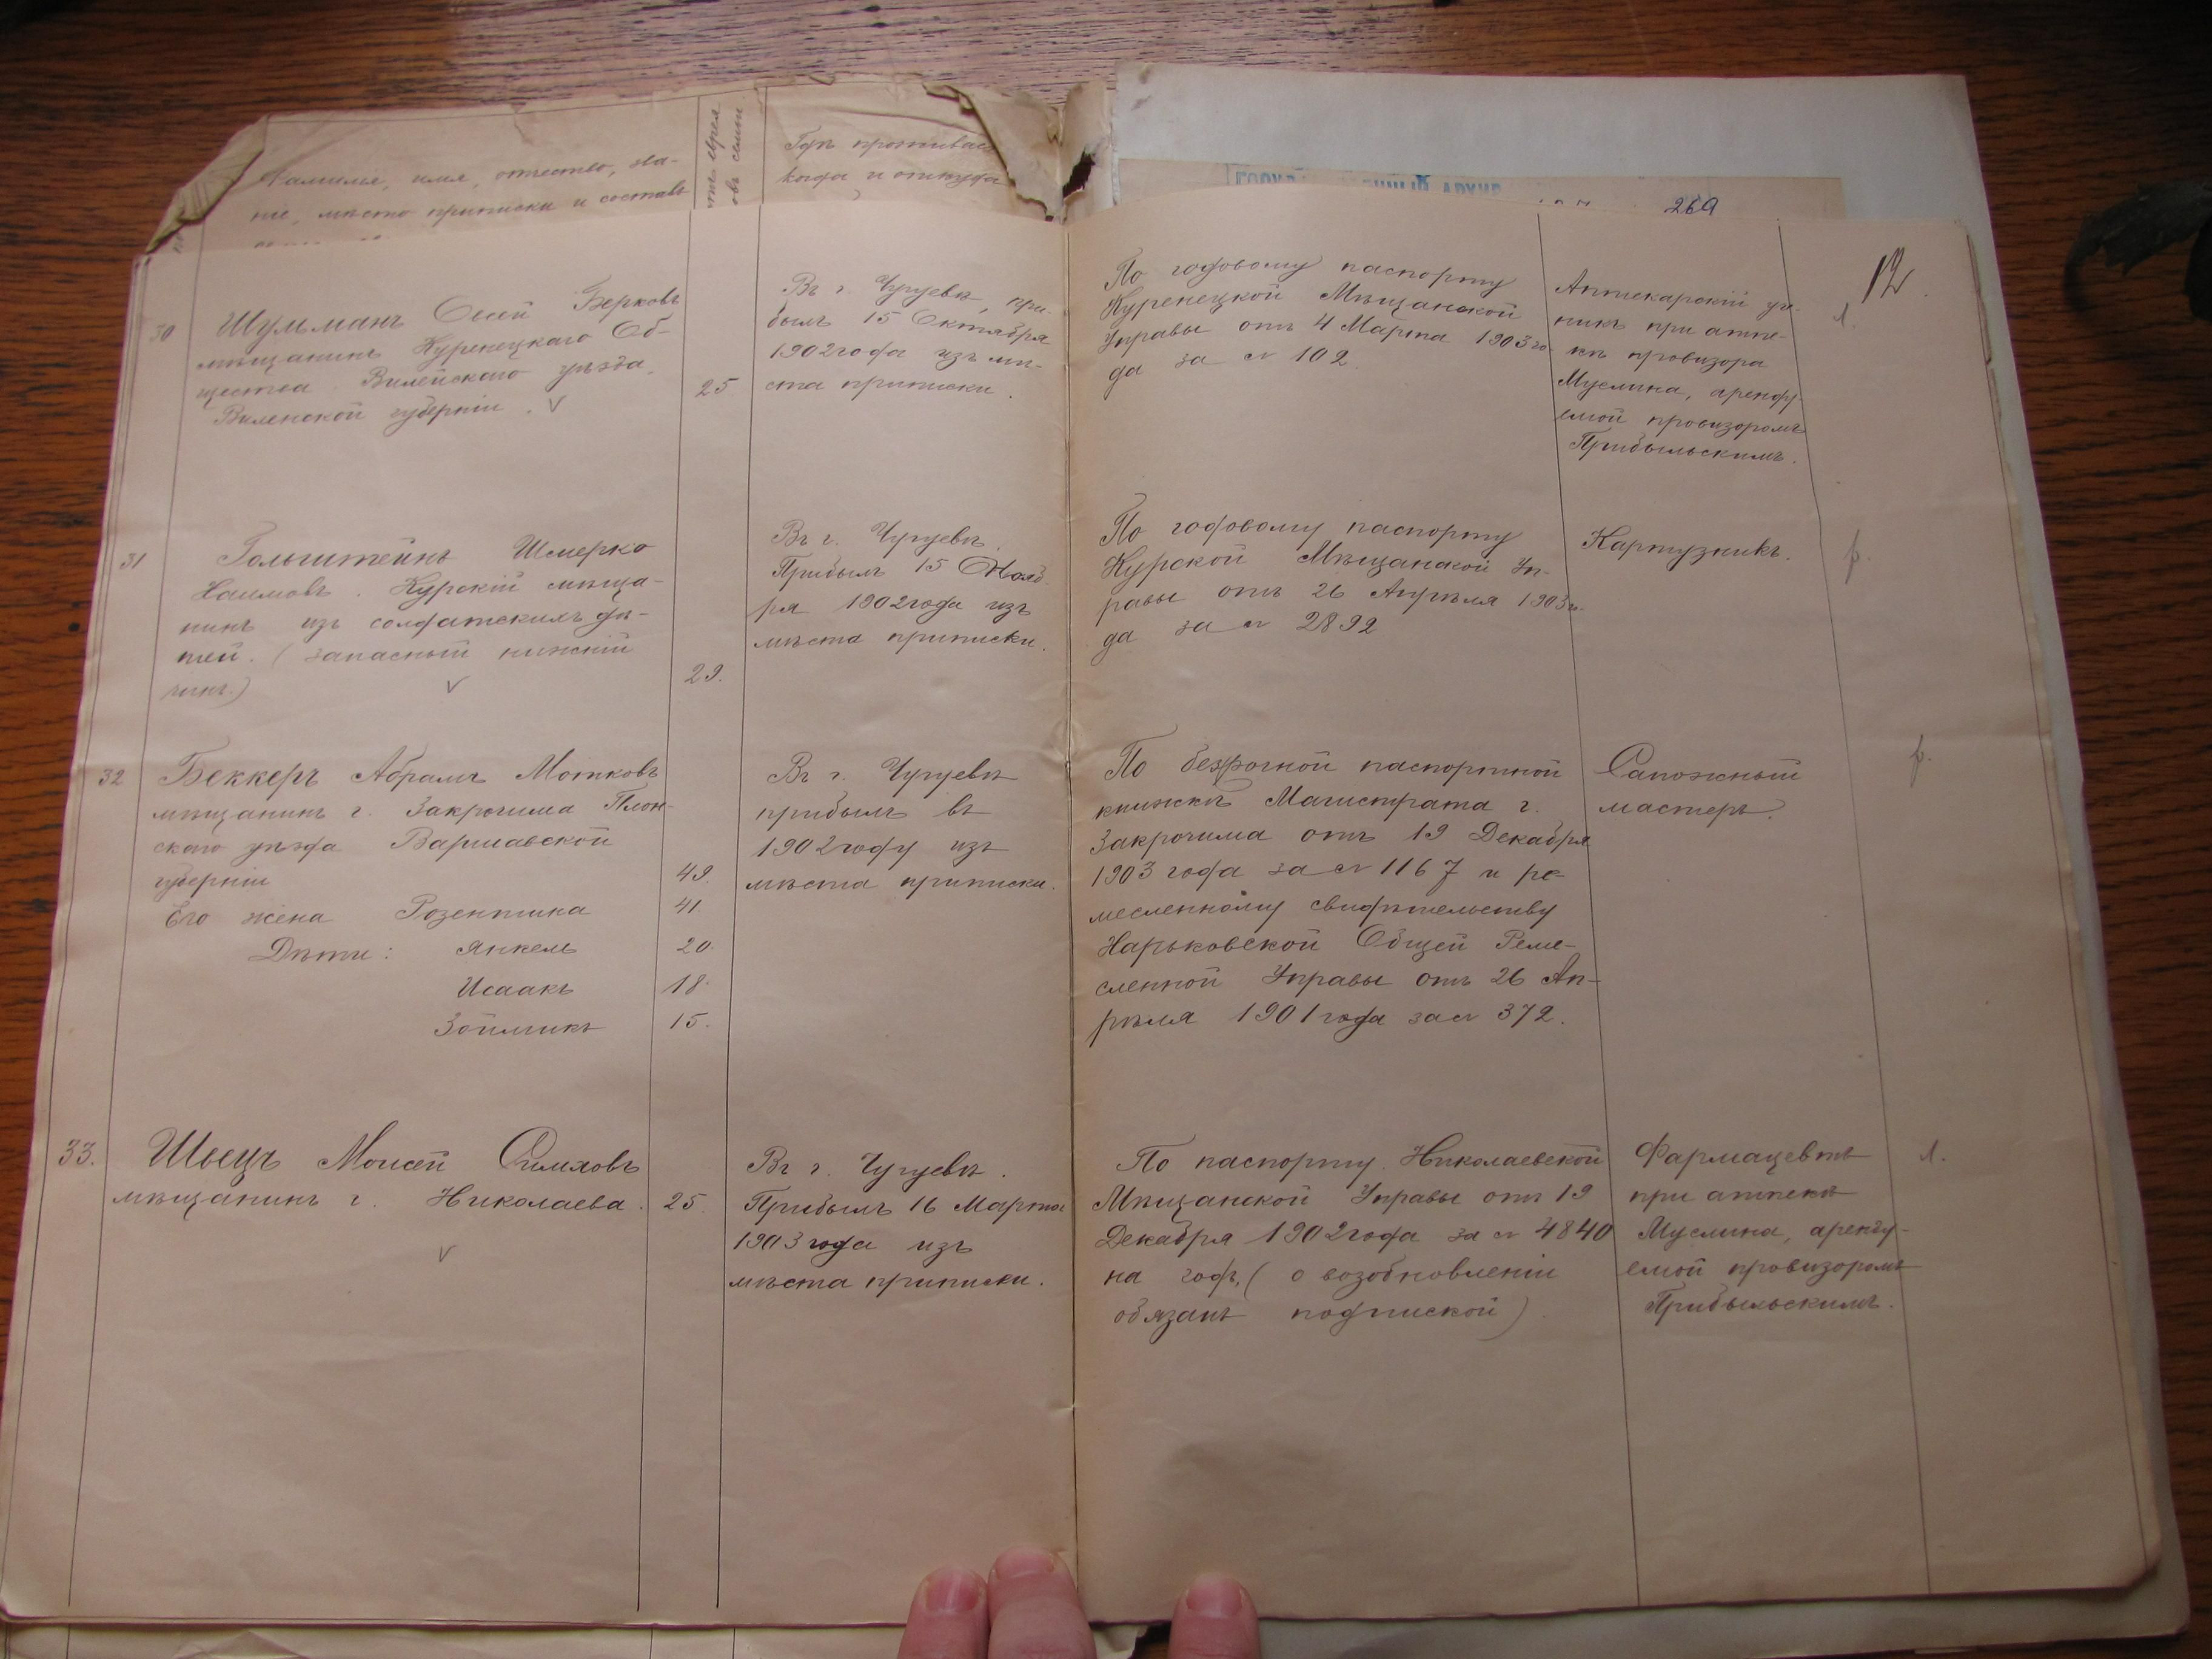 Фамилія, имя, отчество, зва-
ніе, мѣсто приписки и составъ
Гдѣ проживаетъ
когда и откуда
ГОСУД
АРХИВ
269
12
30
Шульманъ Овсей Берковъ
мѣщанинъ Куренецкаго Об-
щества Вилейскаго уѣзда,
Виленской губерніи. V
25
Въ г. Чугуевѣ, при-
былъ 15 Октября
1902 года изъ мѣ-
ста приписки.
По годовому паспорту
Куренецкой Мѣщанской
Управы отъ 4 Марта 1903 го-
да за № 102.
Аптекарскій уче-
никъ при апте-
кѣ провизора
Муслина, аренду-
емой провизоромъ
Прибыльскимъ.
л.
31
Гольштейнъ Шмерко
Хаимовъ. Курскій мѣща-
нинъ изъ солдатскихъ дѣ-
тей. (запасный нижній
чинъ.) V
29.
Въ г. Чугуевѣ.
Прибылъ 15 Нояб-
ря 1902 года изъ
мѣста приписки.
По годовому паспорту
Курской Мѣщанской Уп-
равы отъ 26 Апрѣля 1903 го-
да за № 2892
Картузникъ.
р.
32
Беккеръ Абрамъ Мотковъ
мѣщанинъ г. Закрочима Плон-
скаго уѣзда Варшавской
губерніи
49.
Его жена Розентика
41.
Дѣти: Янкель
20.
Исаакъ
18.
Зойликъ
15.
Въ г. Чугуевѣ
прибылъ въ
1902 году изъ
мѣста приписки.
По безсрочной паспортной
книжкѣ Магистрата г.
Закрочима отъ 19 Декабря
1903 года за № 1167 и ре-
месленному свидѣтельству
Харьковской Общей Реме-
сленной Управы отъ 26 Ап-
рѣля 1901 года за № 372.
Сапожный
мастеръ.
р.
33.
Швецъ Моисей Симховъ
мѣщанинъ г. Николаева.
V
25.
Въ г. Чугуевѣ.
Прибылъ 16 Марта
1903 года изъ
мѣста приписки.
По паспорту Николаевской
Мѣщанской Управы отъ 19
Декабря 1902 года за № 4840
на годъ, (о возобновленіи
обязанъ подпиской)
Фармацевтъ
при аптекѣ
Муслина, аренду-
емой провизоромъ
Прибыльскимъ.
л.